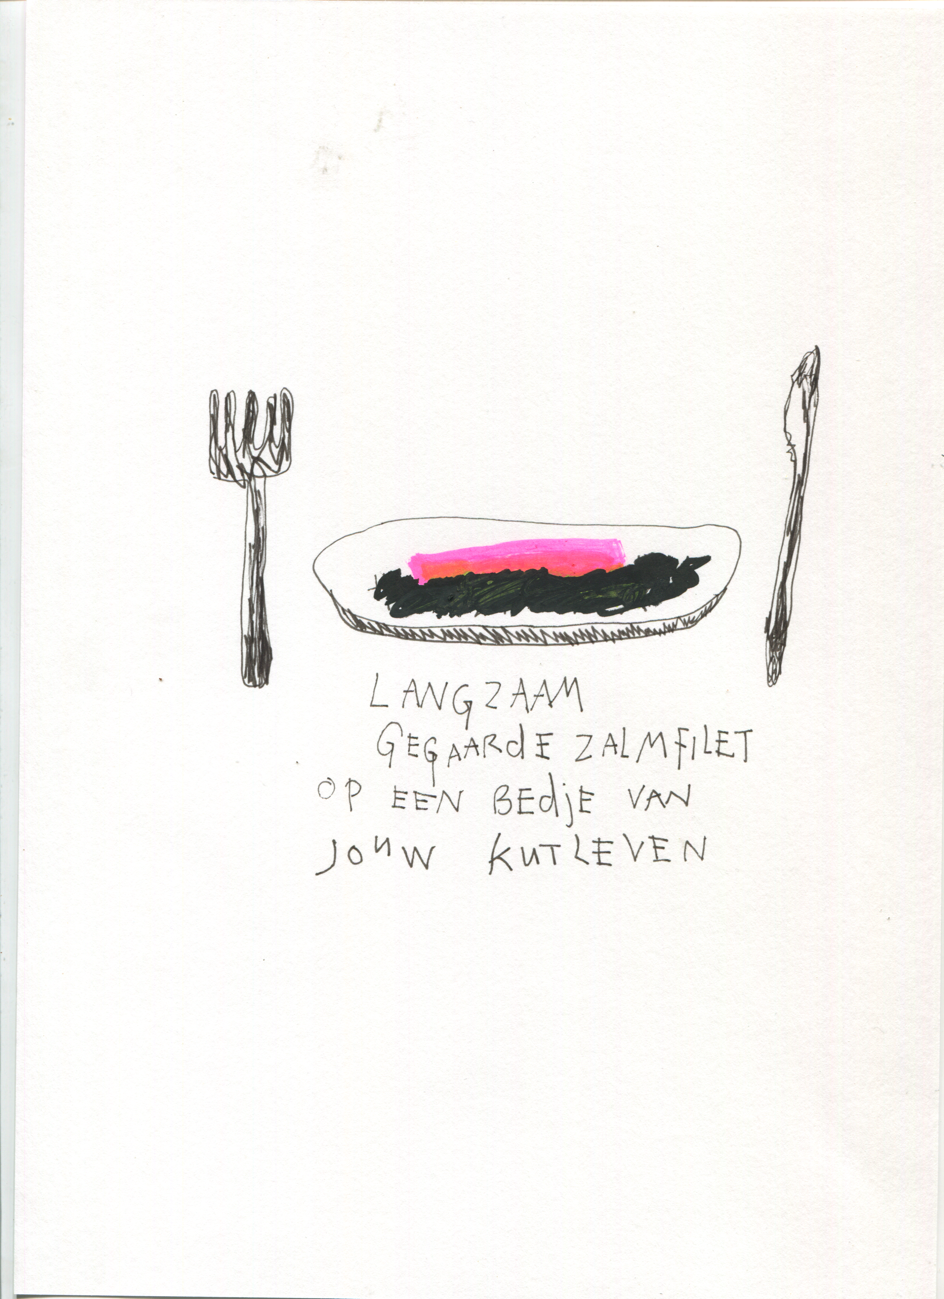 LANGZAAM
GEGAARdE ZALMfILET
OP EEN BEdjE VAN
JOUW KUTLEVEN